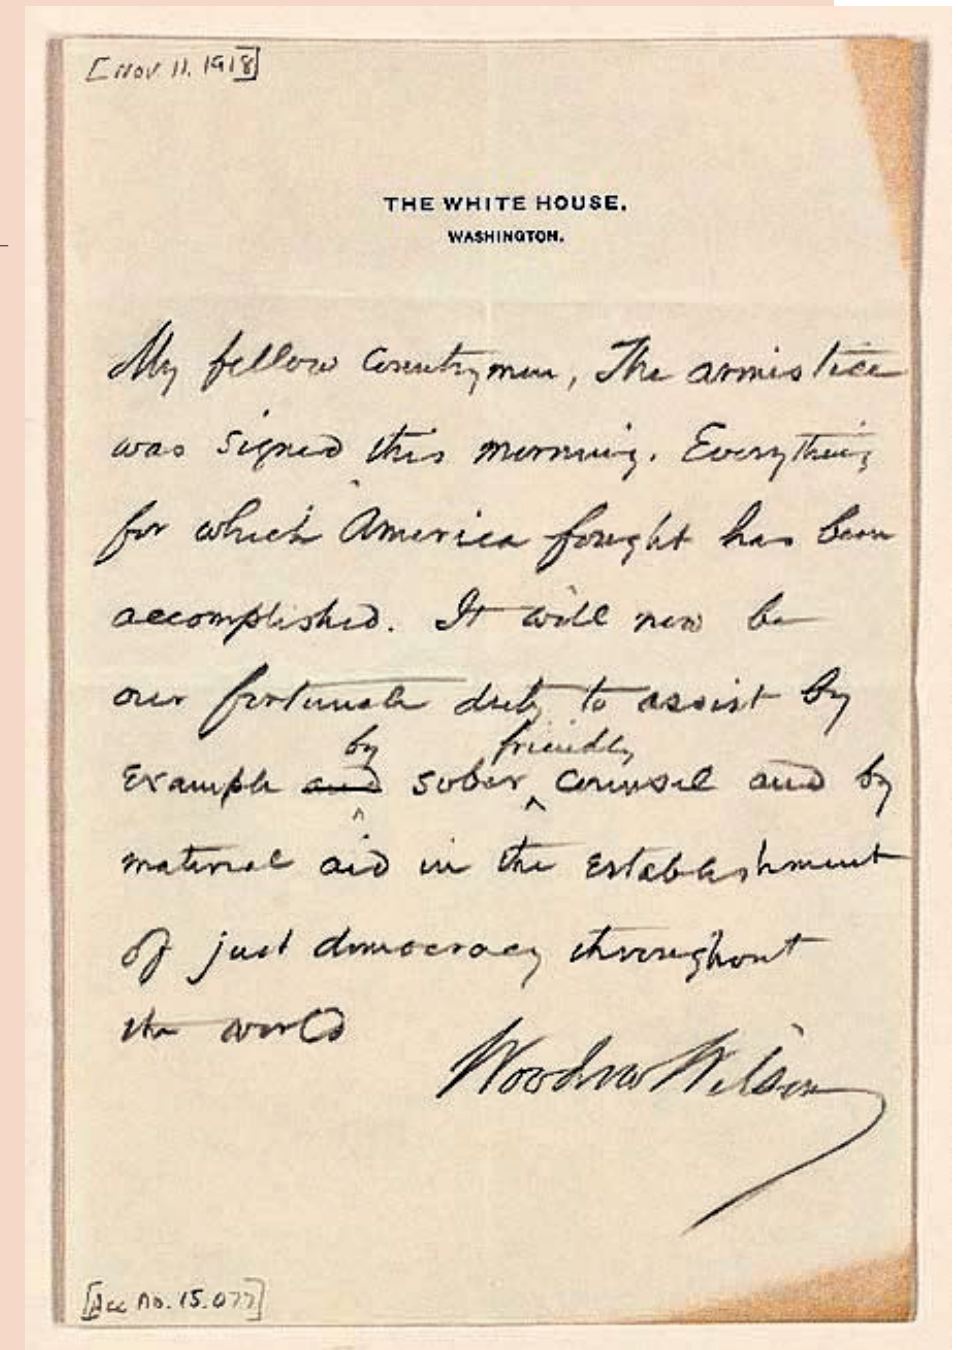 [Nov 11. 1918]
THE WHITE HOUSE.
WASHINGTON.
My fellow Countrymen, The armistice
was signed this morning. Everything
for which America fought has been
accomplished. It will now be
our fortunate duty to assist by
by friendly
example and sober ^ counsel and by
material aid in the establishment
of just democracy throughout
the world
Woodrow Wilson
[Acc no. 15.077]